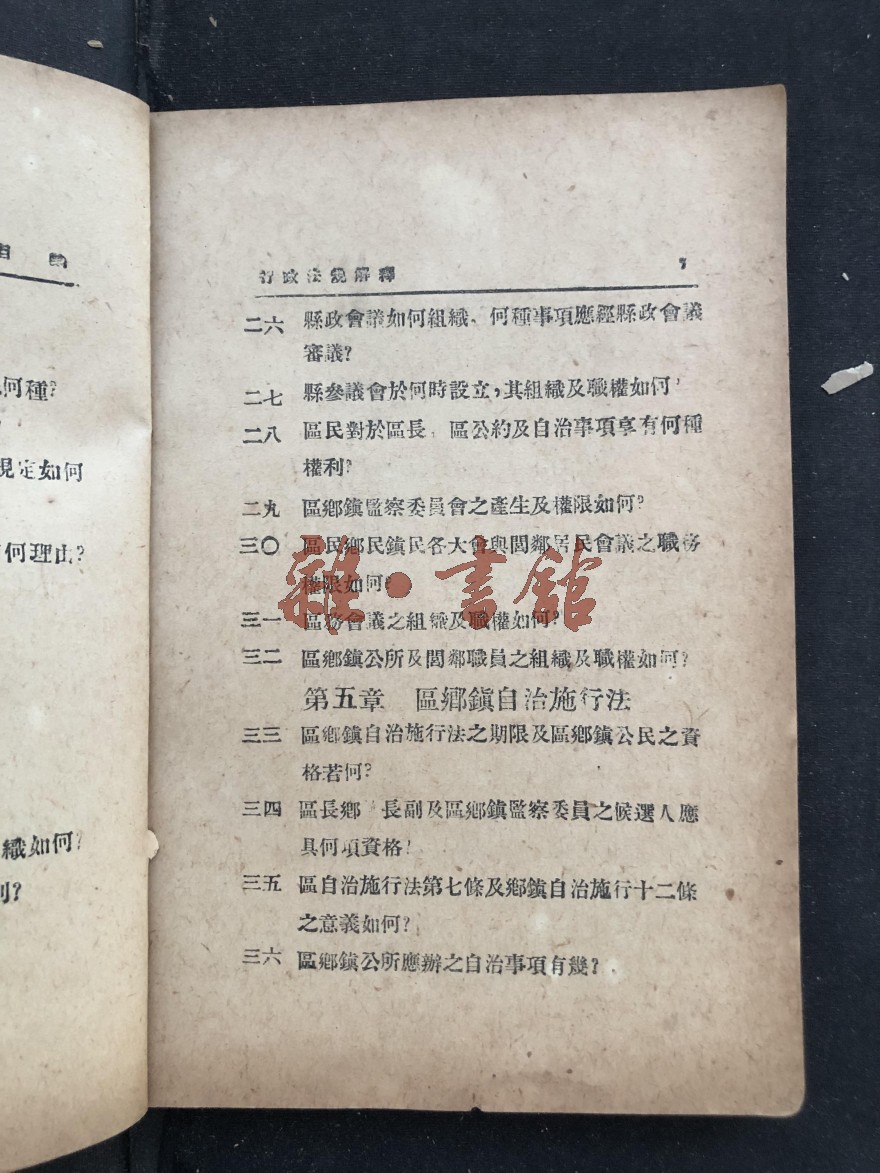 目
何種?
規定如何
何理由?
織如何?
行政法規解釋 7
二六 縣政會議如何組織、何種事項應經縣政會議
審議?
二七 縣參議會於何時設立,其組織及職權如何
二八 區民對於區長 區公約及自治事項享有何種
權利?
二九 區鄉鎮監察委員會之產生及權限如何?
三〇 區民鄉民鎮民各大會與閭鄰居民會議之職務
權限如何?
三一 區務會議之組織及職權如何?
三二 區鄉鎮公所及閭鄰職員之組織及職權如何?
第五章 區鄉鎮自治施行法
三三 區鄉鎮自治施行法之期限及區鄉鎮公民之資
格若何?
三四 區長鄉 長副及區鄉鎮監察委員之候選人應
具何項資格?
三五 區自治施行法第七條及鄉鎮自治施行十二條
之意義如何?
三六 區鄉鎮公所應辦之自治事項有幾?
雜·書館